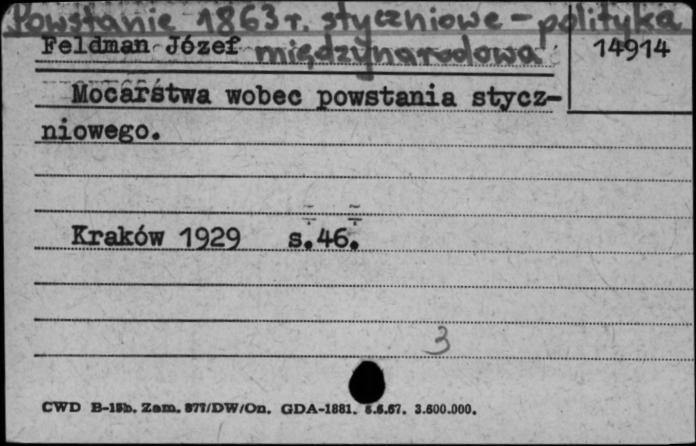 Powstanie 1863 r. styczniowe - polityka
międzynarodowa
Feldman Józef
14914
Mocarstwa wobec powstania stycz-
niowego.
Kraków 1929 s.46.
3
CWD B-15b. Zam. 877/DW/On. GDA-1881. 6.6.67. 3.600.000.